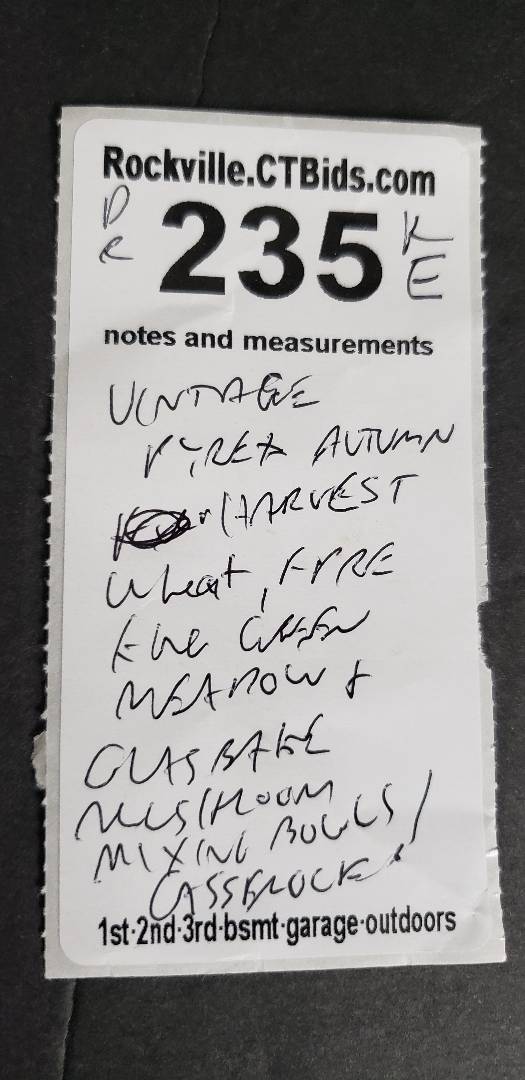 Rockville.CTBids.com
DR 235 KE
notes and measurements
VINTAGE
PYREX AUTUMN
HARVEST
Wheat, FYRE
GREEN
MEADOW &
GLASBAKE
MUSHROOM
MIXING BOWLS/
CASSEROLE
1st·2nd·3rd·bsmt·garage·outdoors